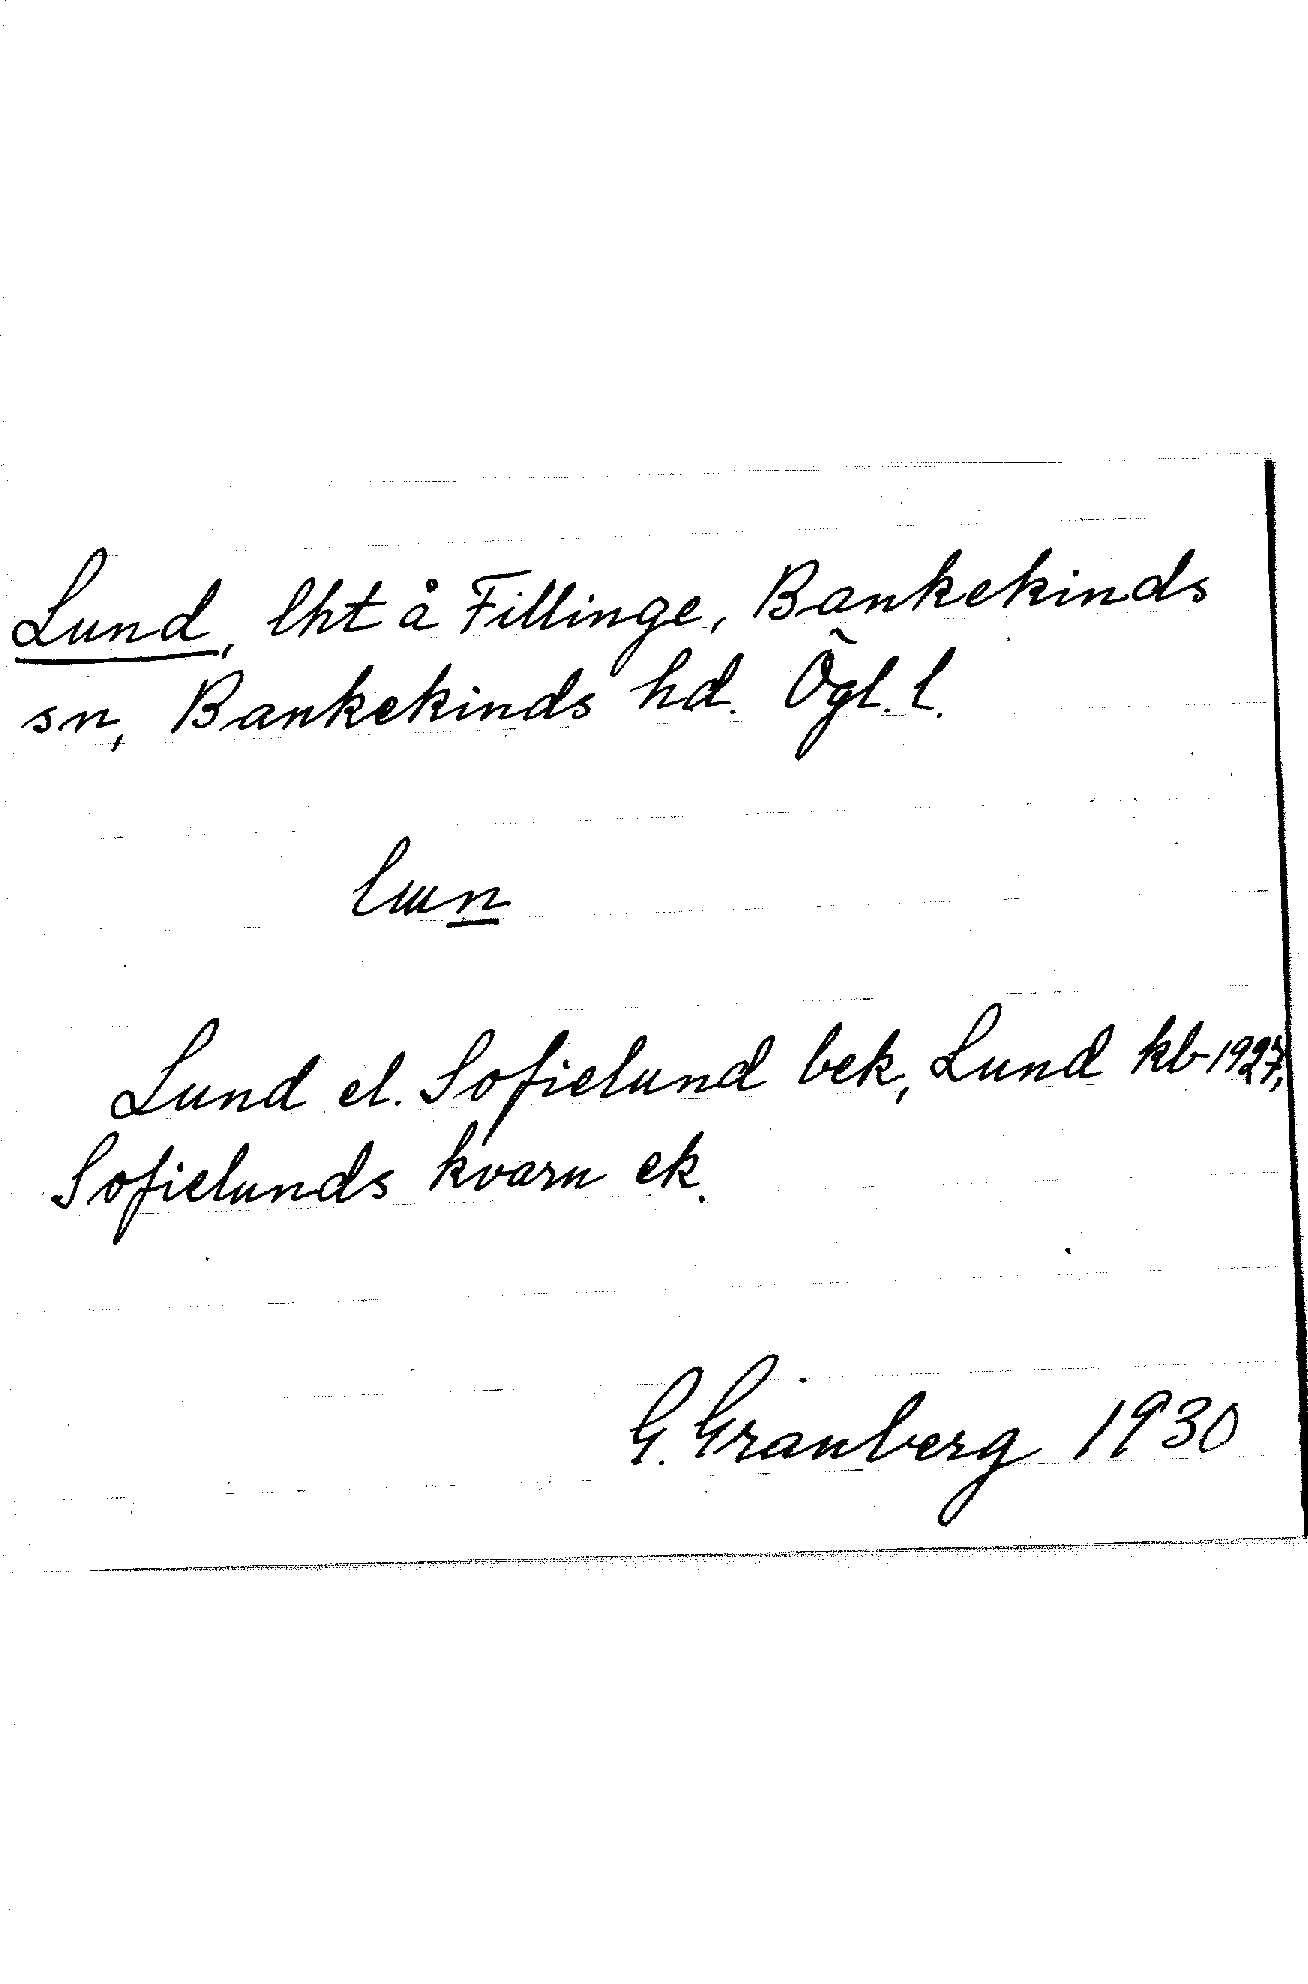 Lund, lht å Fillinge, Bankekinds
sn, Bankekinds hd. Ögl. l.
Lund el. Sofielund bek, Lund kb 1927,
Sofielunds kvarn ek.
G. Granberg 1930